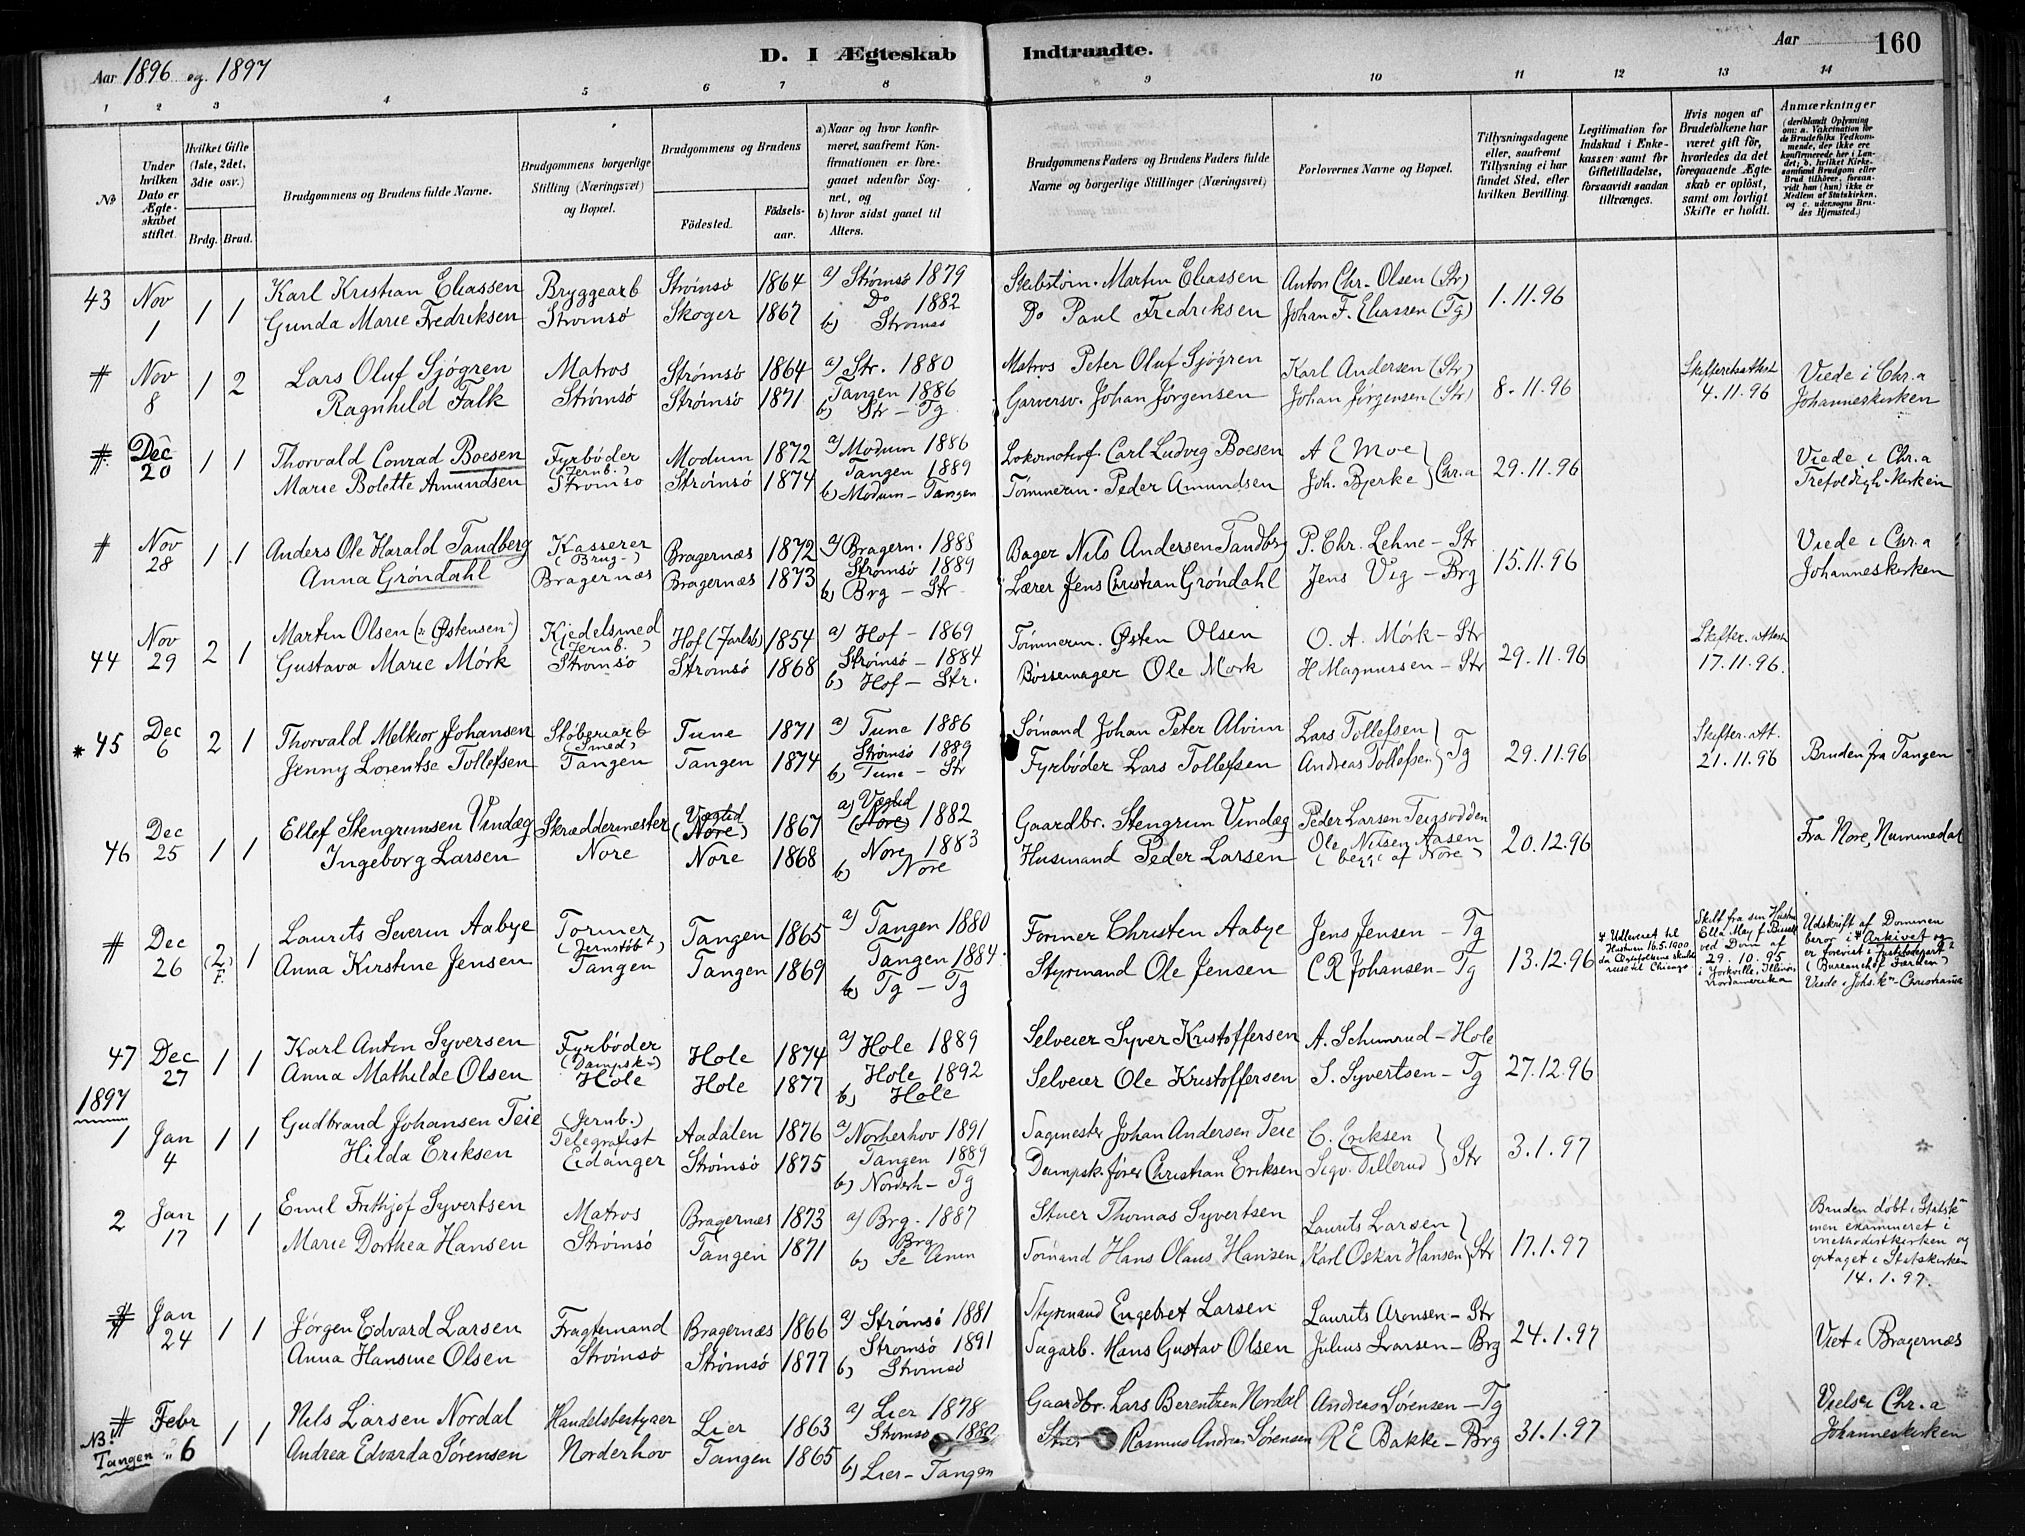 Aar 1896 og 1897
D. I Ægteskab Indtraadte.
Aar 160
1 2 3 4 5 6 7 8 9 10 11 12 13 14
No
Under hvilken Dato er Ægteskabet stiftet.
Hvilket Gifte (1ste, 2det, 3die osv.)
Brdg. Brud.
Brudgommens og Brudens fulde Navne.
Brudgommens borgerlige Stilling (Næringsvei) og Bopæl.
Brudgommens og Brudens
Fødested. Fødselsaar.
a) Naar og hvor konfirmeret, saafremt Konfirmationen er foregaaet udenfor Sognet, og
b) hvor sidst gaaet til Alters.
Brudgommens Faders og Brudens Faders fulde Navne og borgerlige Stillinger (Næringsvei)
Forlovernes Navne og Bopæl.
Tillysningsdagene eller, saafremt Tillysning ei har fundet Sted, efter hvilken Bevilling.
Legitimation for Indskud i Enkekassen samt for Giftetilladelse, forsaavidt saadan tiltrænges.
Hvis nogen af Brudefolkene har været gift før, hvorledes da det foregaaende Ægteskab er opløst, samt om lovligt Skifte er holdt.
Anmærkninger
(deriblandt Oplysning om: a. Vakcination for de Brudefolks Vedkommende, der ikke ere konfirmerede her i Landet; b. hvilket Kirkesamfund Brudgom eller Brud tilhører, forsaavidt han (hun) ikke er Medlem af Statskirken, og c. udensogns Brudes Hjemsted.)
43 Nov 1 1 1 Karl Kristian Eliassen Bryggearb Strømsø 1864 a) Strømsø 1879 Skibstøm. Martin Eliassen Anton Chr. Olsen (Str) 1.11.96
Gunda Marie Fredriksen Strømsø Skoger 1867 Do 1882 Do Paul Fredriksen Johan F. Eliassen (Tg)
b) Strømsø
# Nov 8 1 2 Lars Oluf Sjøgren Matros Strømsø 1864 a) Str. 1880 Matros Peter Oluf Sjøgren Karl Andersen (Str) 8.11.96 4.11.96 Viede i Chr.a
Ragnhild Falk Strømsø Strømsø 1871 Tangen 1886 Garversv. Johan Jørgensen Johan Jørgensen (Str) Johanneskirken
b) Str - Tg
# Dec 20 1 1 Thorvald Conrad Boesen Fyrbøder (Jernb.) Modum 1872 a) Modum 1886 Carl Ludvig Boesen A E Moe 29.11.96 Viede i Chr.a
Marie Bolette Amundsen Strømsø Strømsø 1874 Tangen 1889 Tømmerm. Peder Amundsen Joh. Bjerke } Chr.a Trefoldigh.kirken
b) Modum - Tangen
# Nov 28 1 1 Anders Ole Harald Tandberg Kasserer (Brug.) Bragernæs 1872 a) Bragern. 1888 Bager Nils Andersen Tandbrg P. Chr. Lehne - Str 15.11.96 Viede i Chr.a
Anna Grøndahl Bragernæs Bragernæs 1873 Strømsø 1889 Lærer Jens Christian Grøndahl Jens Vig - Brg Johanneskirken
b) Brg - Str
44 Nov 29 2 1 Martin Olsen ("Østensen") Kjedelsmed (Jernb.) Hof (Jarlsb) 1854 a) Hof - 1869 Tømmerm. Østen Olsen O. A. Mørk - Str 29.11.96 17.11.96.
Gustava Marie Mørk Strømsø Strømsø 1868 Strømsø - 1884 Bøssemager Ole Mørk H Magnussen - Str
b) Hof - Str.
* 45 Dec 6 2 1 Thorvald Melkior Johansen Støberiarb (Smed) Tune 1871 a) Tune 1886 Sømand Johan Peter Alvim Lars Tollefsen 29.11.96 Skifter. Att. 21.11.96 Bruden fra Tangen
Jenny Lorentse Tollefsen Tangen Tangen 1874 Strømsø 1889 Fyrbøder Lars Tollefsen Andreas Tollefsen } Tg
b) Tune - Str
46 Dec 25 1 1 Ellef Stengrimsen Vindæg Skræddermester (Nore) 1867 a) (Nore) 1882 Gaardbr. Stengrim Vindæg Peder Larsen 20.12.96 Fra Nore, Nummedal
Ingeborg Larsen Nore Nore 1868 Nore 1883 Husmand Peder Larsen Ole Nilsen Aasen (begge af Nore)
b) Nore
# Dec 26 (2) F. 1 Laurits Severin Aabye Former (Jernstøbt) Tangen 1865 a) Tangen 1880 Former Christen Aabye Jens Jensen - Tg 13.12.96
Anna Kirstine Jensen Tangen Tangen 1869 Tangen 1884. Styrmand Ole Jensen C R Johansen - Tg
b) Tg - Tg
Udleveret til Hustru 16.5.1900 da Ægtefolkene skulde reise til Chicago.
Skilt fra sin Hustru Ella May f. ved Dom af 29.10.95 i Yorkville, Illinois, Nordamerika
Udskrift af Dommen beror i Arkivet og er forevist i Justitsdepart. Viede i Johs.kn - Christiania
47 Dec 27 1 1 Karl Anton Syversen Fyrbøder (Dampsk.) Hole 1874 a) Hole 1889 Selveier Syver Kristoffersen A. Schinrud - Hole 27.12.96
Anna Mathilde Olsen Hole Hole 1877 Hole 1892 Selveier Ole Kristoffersen S. Syvertsen - Tg
b) Hole
1897
1 Jan 4 1 1 Gudbrand Johansen Teie (Jernb.) Telegrafist Aadalen 1876 a) Norderhov 1891 Sagmester Johan Andersen Teie C. Eriksen 3.1.97
Hilda Eriksen Eidanger Strømsø 1875 Tangen 1889 Dampsk.fører Christian Eriksen Sigv. Tillerud } Str
b) Norderh - Tg
2 Jan 17 1 1 Emil Frithjof Syvertsen Matros Bragernæs 1873 a) Brg. 1887 Stuer Thomas Syvertsen Laurits Larsen 17.1.97
Marie Dorthea Hansen Strømsø Tangen 1871 Brg Sømand Hans Olaus Hansen Karl Oskar Hansen } Str
b) Se Anm
Bruden døbt i Statsk. men examineret i methodistkirken og optaget i Statskirken 14.1.97.
# Jan 24 1 1 Jørgen Edvard Larsen Fragtemand Bragernæs 1866 a) Strømsø 1881 Styrmand Engebret Larsen Laurits Aronsen - Str 24.1.97 Viet i Bragernæs
Anna Hansine Olsen Strømsø Strømsø 1877 Strømsø 1891 Sagarb. Hans Gustav Olsen Julius Larsen - Brg
b) Strømsø
# Febr 6 1 1 Nils Larsen Nordal Handelsbestyrer Lier 1863 a) Lier 1878 Gaardbr. Lars Berentzen Nordal Andreas Sørensen - Tg 31.1.97 Chr.a
NB! Tangen Andrea Edvarda Sørensen Norderhov Tangen 1865 Strømsø Stuer Rasmus Andreas Sørensen R E Bakke - Brg Johanneskirken
b) Lier - Tangen